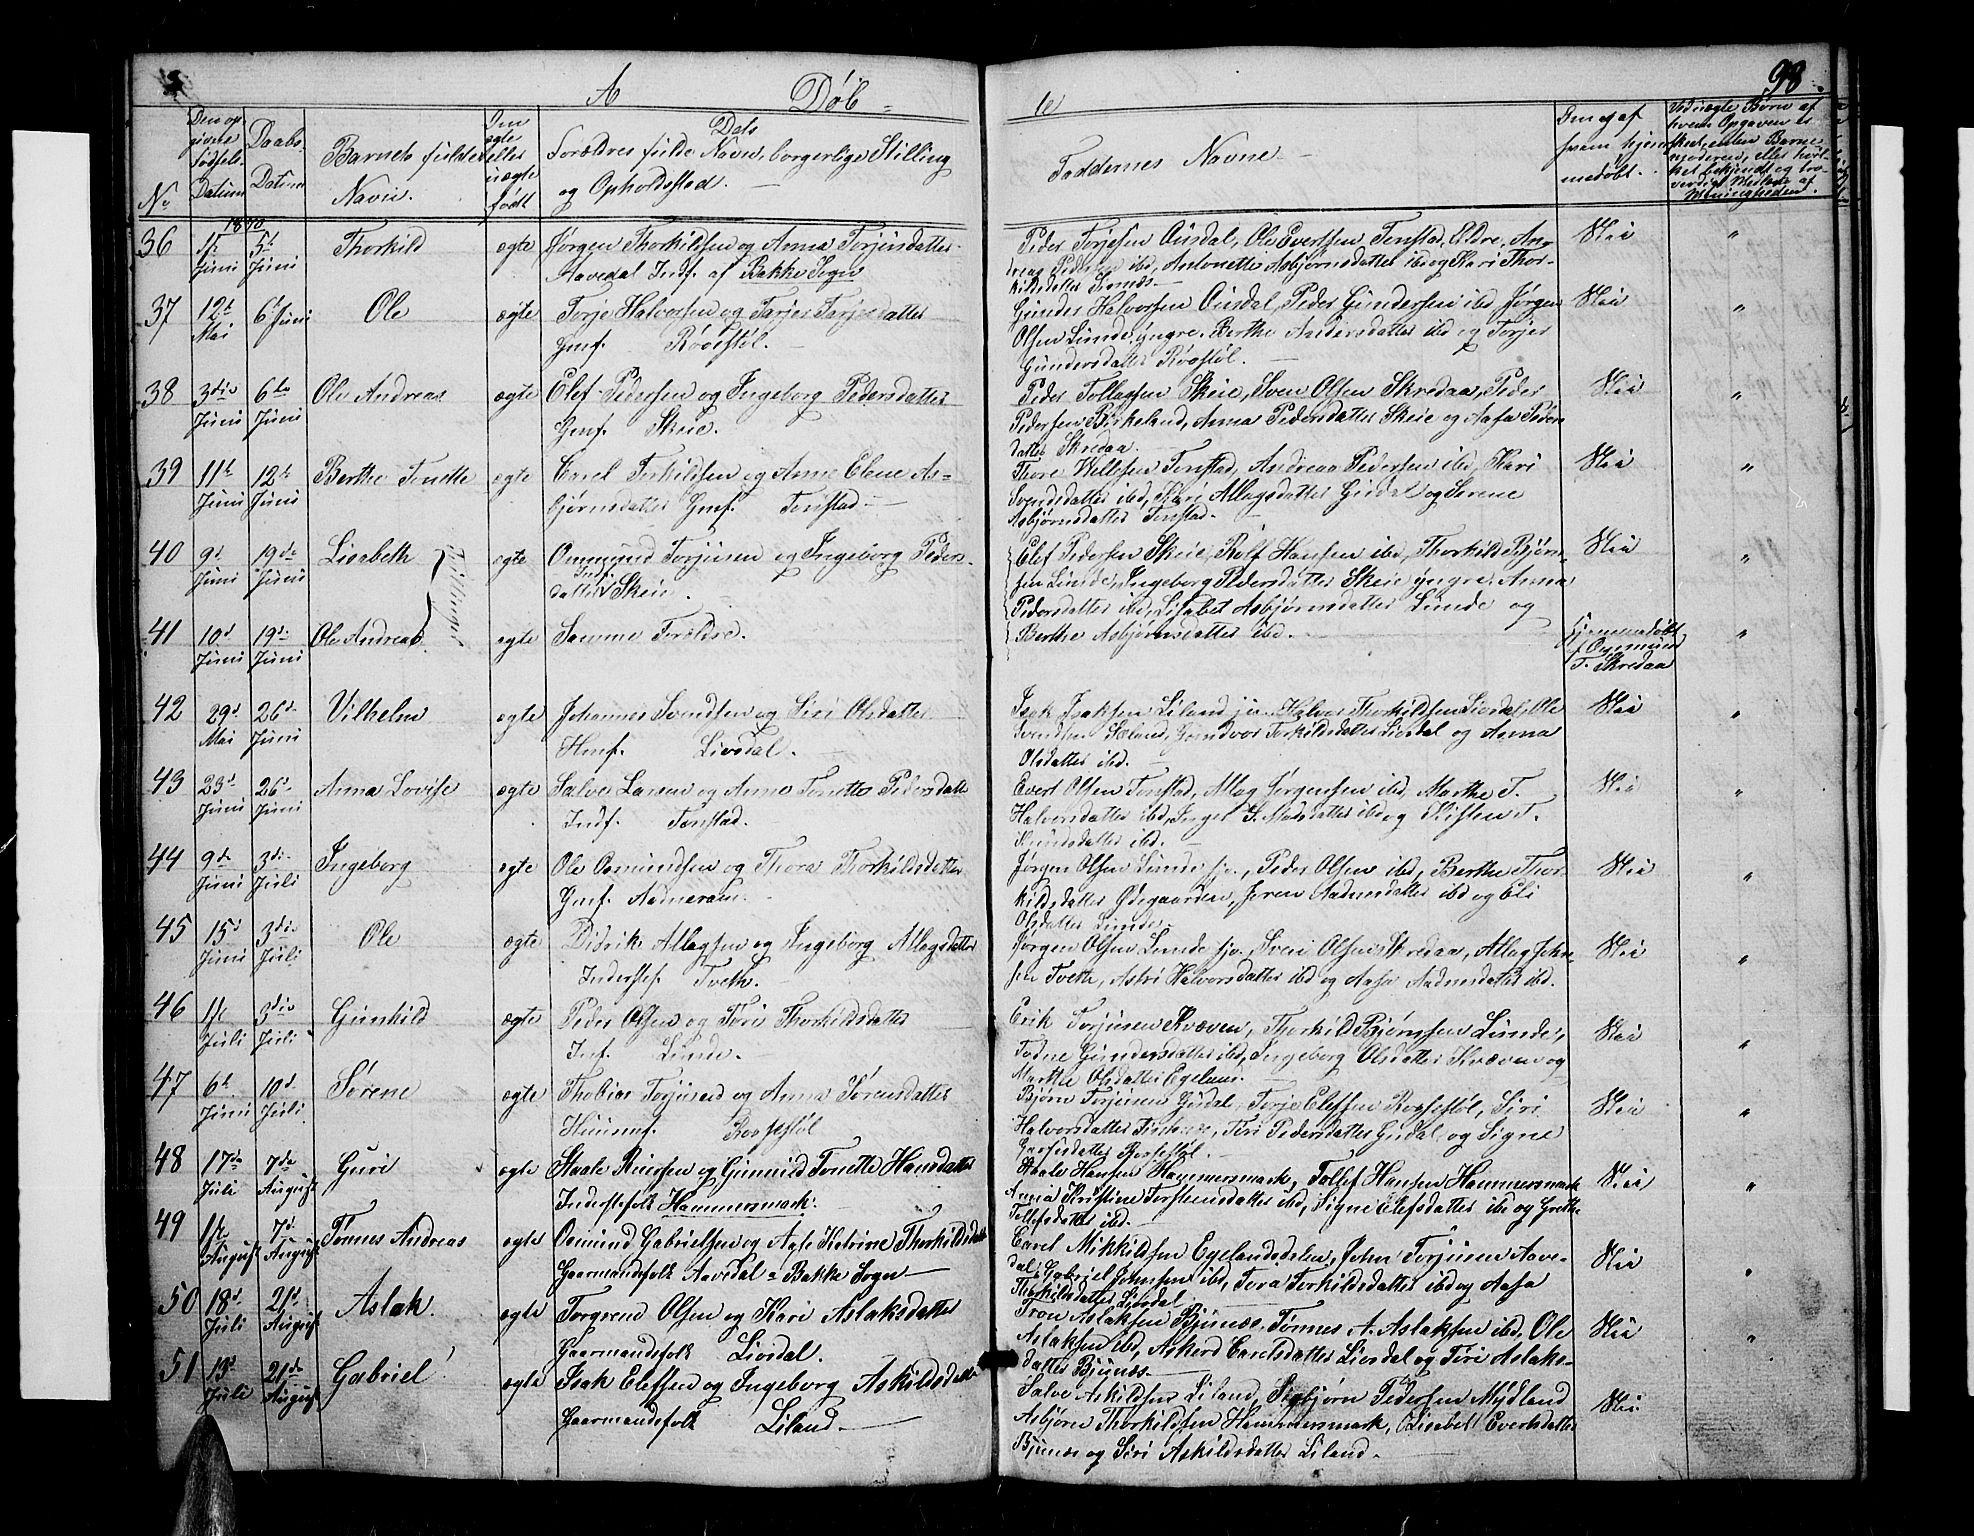 98.
A Døb- te
No
Den op-
givne
Fødsels-
Datum
Daabs-
Datum
Barnets fulde
Navn.
Om
ægte
eller
uægte
født
Forældres fulde Navn, borgerlige Stilling
og Opholdssted.
Faddernes Navne
Om og af
hvem hjem-
medøbt.
1870
36 5te Juni Thorkild ægte Jørgen Thorkildsen og Anna Torjusdatter
Aavedal Indf. af Bakke Sogn
Peder Torjesen Ousdal, Ole Evertsen Tonstad, Eldre, An-
dreas Pedersen ibd, Antonette Asbjørnsdatter ibd og Kari Thor-
kildsdatter
Nei "
37 12te Mai 6 Juni Ole ægte Torje Halvorsen og Torjer Torjesdatter
Gmf. Røsestøl.
Gunder Halvorsen Ousdal, Peder Gundersen ibd Jørgen
Olsen Lunde yngre, Berthe Andersdatter ibd og Torjer
Gundersdatter Røsstøl.
Nei "
38 3die Juni 6te Juni Ole Andreas ægte Elef Pedersen og Ingeborg Pedersdatter
Gmf. Skeie.
Peder Tollagsen Skeie, Sven Olsen Skredaa, Peder
Pedersen Birkeland, Anna Pedersdatter Skeie og Aasa Peders
datter Skredaa
Nei "
39 11te Juni 12te Juni Berthe Tonette ægte Carel Terkildsen og Anne Elene As-
bjørnsdatter Gmf. Tonstad
Thore Villesen Tonstad, Andreas Pedersen ibd, Kari
Svendsdatter ibd, Kari Atlagsdatter Gudal og Serene
Asbjørnsdatter Tonstad.
Nei "
40 9d Juni 19de Juni Lisabeth Tvillinger ægte Ommund Torjusen og Ingeborg Peders-
datter Indf. Skeie.
Elef Pedersen Skeie, Rolf Hansen ibd, Thorkild Bjørn-
sen Lunde, Ingeborg Pedersdatter Skeie yngre, Anna
Pedersdatter ibd, Lisabet Asbjørnsdatter Lunde og
Nei "
41 10d Juni 19de Juni Ole Andreas ægte Samme Forældre.
Berthe Asbjørnsdatter ibd.
Hjemmedøbt
af Ommund
T. Skredaa "
42 29d Mai 26de Juni Vilhelm ægte Johannes Svendsen og Siri Olsdatter
Hmf. Liosdal.
Isak Isaksen Liland jr. Halvor Thorkildsen Liosdal, Ole
Svendsen Liland, Gundvor Torkildsdatter Liosdal og Anna
Olsdatter ibd.
Nei "
43 23d Juni 26d Juni Anna Lovise ægte Salve Larsen og Anne Tonette Pedersdatter
Indf. Tonstad.
Evert Olsen Tonstad, Atlag Jørgensen ibd, Marthe T.
Halvorsdatter ibd, Inger S. Madsdatter ibd og Kisten T.
Knudsdatter ibd.
Nei "
44 9de Juni 3die Juli Ingeborg ægte Ole Osmundsen og Thora Thorkildsdatter
Gmf. Aadneram.
Jørgen Olsen Lunde sjo., Peder Olsen ibd, Berthe Thor-
kildsdatter Ødegaarden, Joren Aadnesdatter ibd og Eli
Olsdatter Lunde.
Nei "
45 15d Juni 3die Juli Ole ægte Didrike Atlagsen og Ingeborg Atlagsdatter
Inderstef. Tveth.
Jørgen Olsen Lunde sjo. Sven Olsen Skredaa, Atlag John-
sen Tveth, Astri Halvorsdatter ibd og Aasa Aadnesdatter ibd.
Nei "
46 1ste Juli 3die Juli Gunhild ægte Peder Olsen og Tori Thorkildsdatter
Inf. Lunde.
Erik Torjusen Kvæven, Thorkild Bjørnsen Lunde,
Todne Gundersdatter ibd, Ingeborg Olsdatter Kvæven og
Marthe Olsdatter Egeland.
Nei "
47 6te Juni 10d Juli Sørene ægte Thobias Torjusen og Anna Sørensdatter
Huusmf. Rossestøl
Bjørn Torjusen Gudal, Torje Elefsen Rossestøl, Siri
Halvorsdatter, Tori Pedersdatter Gudal og Signe
Rossestøl.
Nei "
48 17de Juli 7de August Guri ægte Staale Reiersen og Gunnild Tonette Hansdatter
Inderstefolk Hammersmark.
Staale Hansen Hammersmark, Tollef Hansen Hammersmark
Anna Kristine Torstensdatter ibd, Signe Elefsdatter ibd og Grethe
Tollefsdatter ibd.
Nei "
49 1ste August 7d August Tønnes Andreas ægte Osmund Gabrielsen og Aase Katrine Thorkildsdatter
Gaarmandsfolk Aavedal a Bakke Sogn
Carel Mikkildsen Egelandsdalen, John Torjusen Aave-
dal, Gabriel Johnsen ibd, Tora Torkildsdatter ibd og Aasa
Thorkildsdatter Liosdal
Nei "
50 18d Juli 21d August Aslak. ægte Torgrend Olsen og Kari Aslaksdatter
Gaarmandsfolk Liosdal.
Tron Aslaksen Bjunæs, Tønnes A. Aslaksen ibd, Ole
Aslaksen ibd, Askerd Carelsdatter Liosdal og Tori Aslaks-
datter Bjunæs
Nei "
51 13d Juli 21de August Gabriel ægte Isak Elefsen og Ingeborg Askildsdatter
Gaarmandsfolk Liland.
Salve Askildsen Liland, Asbjørn Pedersen Mydland
Asbjørn Thorkildsen Hammersmark, Lisabet Evertsdatter
Bjunæs og Siri Askildsdatter Liland.
Nei